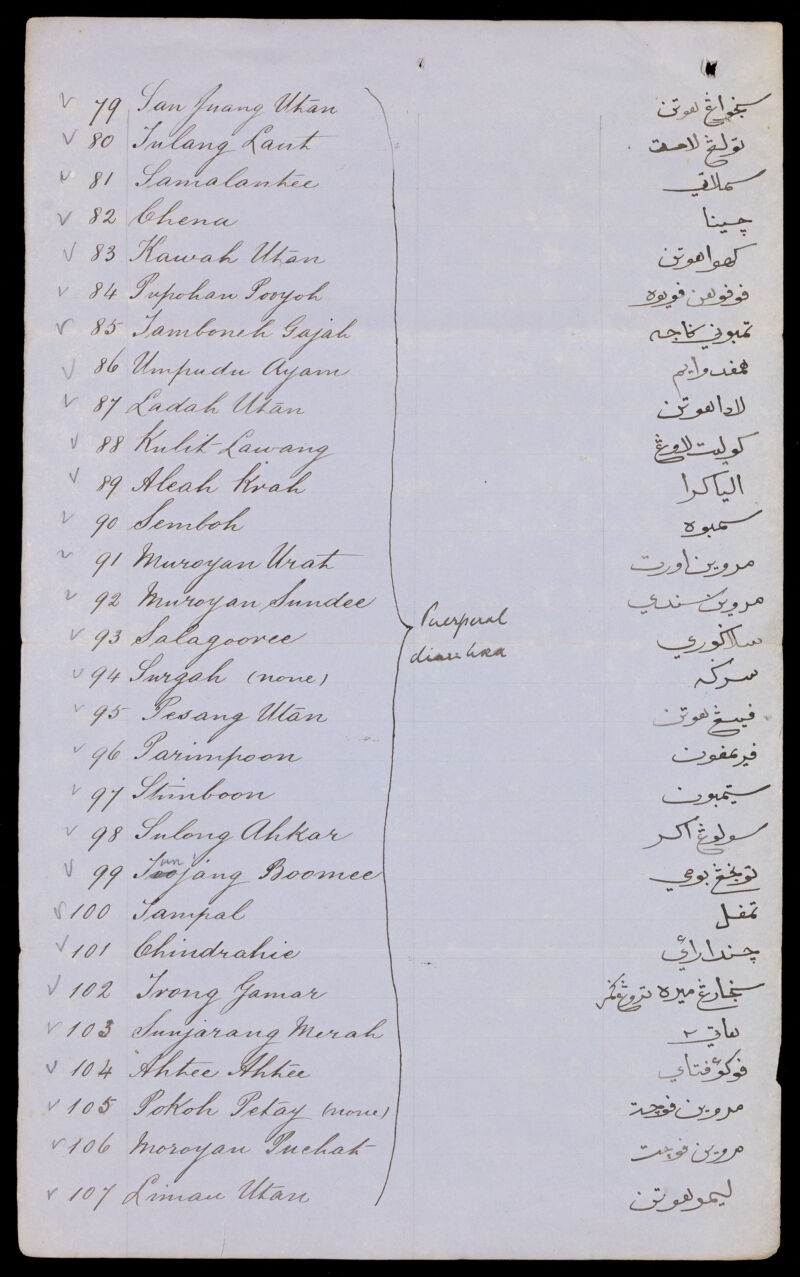 79 San Juang Utan سنجواڠ هوتن
80 Tulang Laut تولڠ لاوت
81 Samalantee
82 Chena چينا
83 Kawah Utan كهوا هوتن
84 Pupohan Pooyoh فوفوهن فويوه
85 Tamboneh Gajah تمبوني ݢاجه
86 Umpudu Ayam همفدو ايم
87 Ladah Utan لادا هوتن
88 Kulit Lawang كوليت لاوڠ
89 Aleah Krah اليا كرا
90 Semboh سمبوه
91 Muroyan Urat مروين اورت
92 Muroyan Sundee مروين سندي
Puerperal
93 Salagooree سلاݢوري
diarrhœa
94 Surgah (none) سركه
95 Pesang Utan فيسڠ هوتن
96 Parimpoon فريمفون
97 Stimboon ستيمبون
98 Sulong Ahkar سولوڠ اكر
99 Tunjang Boomee تونجڠ بومي
100 Tampal تمفل
101 Chindrahie چندارائي
102 Trong Gamar سنجارڠ ميره تروڠ ݢمر
103 Sunjarang Merah هاتي ٢
104 Ahtee Ahtee فوكوء فتاي
105 Pokoh Petay (none) مروين فوچت
106 Moroyan Puchat مروين فوچت
107 Limau Utan ليمو هوتن